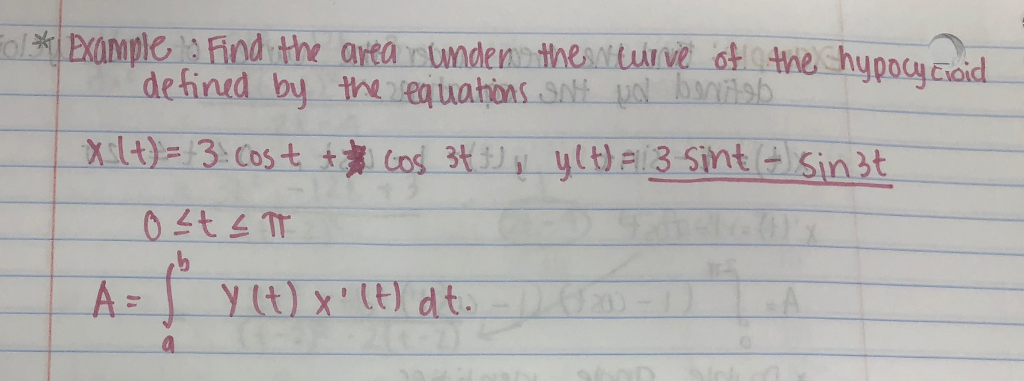 * Example : Find the area under the curve of the hypocycloid
defined by the equations
x(t) = 3 cos t + cos 3t , y(t) = 3 sint - sin 3t
0 ≤ t ≤ π
A = ∫ₐᵇ y(t) x'(t) dt.